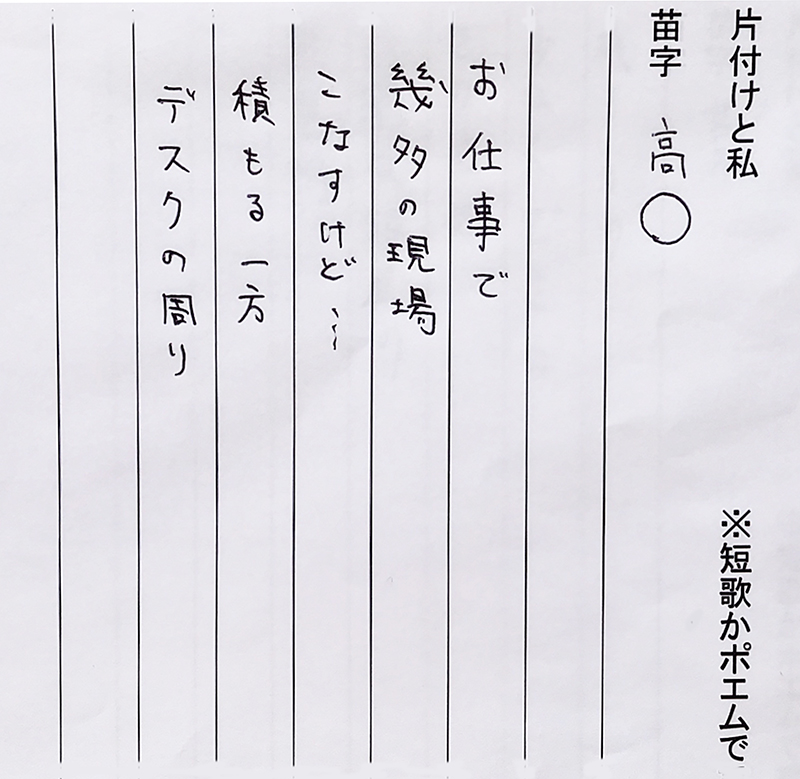 片付けと私 ※短歌かポエムで
苗字 高〇
お仕事で
幾多の現場
こなすけど…
積もる一方
デスクの周り